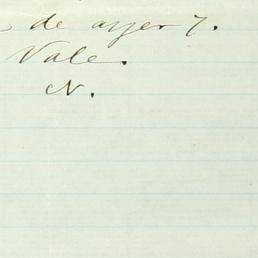 de ayer 7.
Vale.
N.